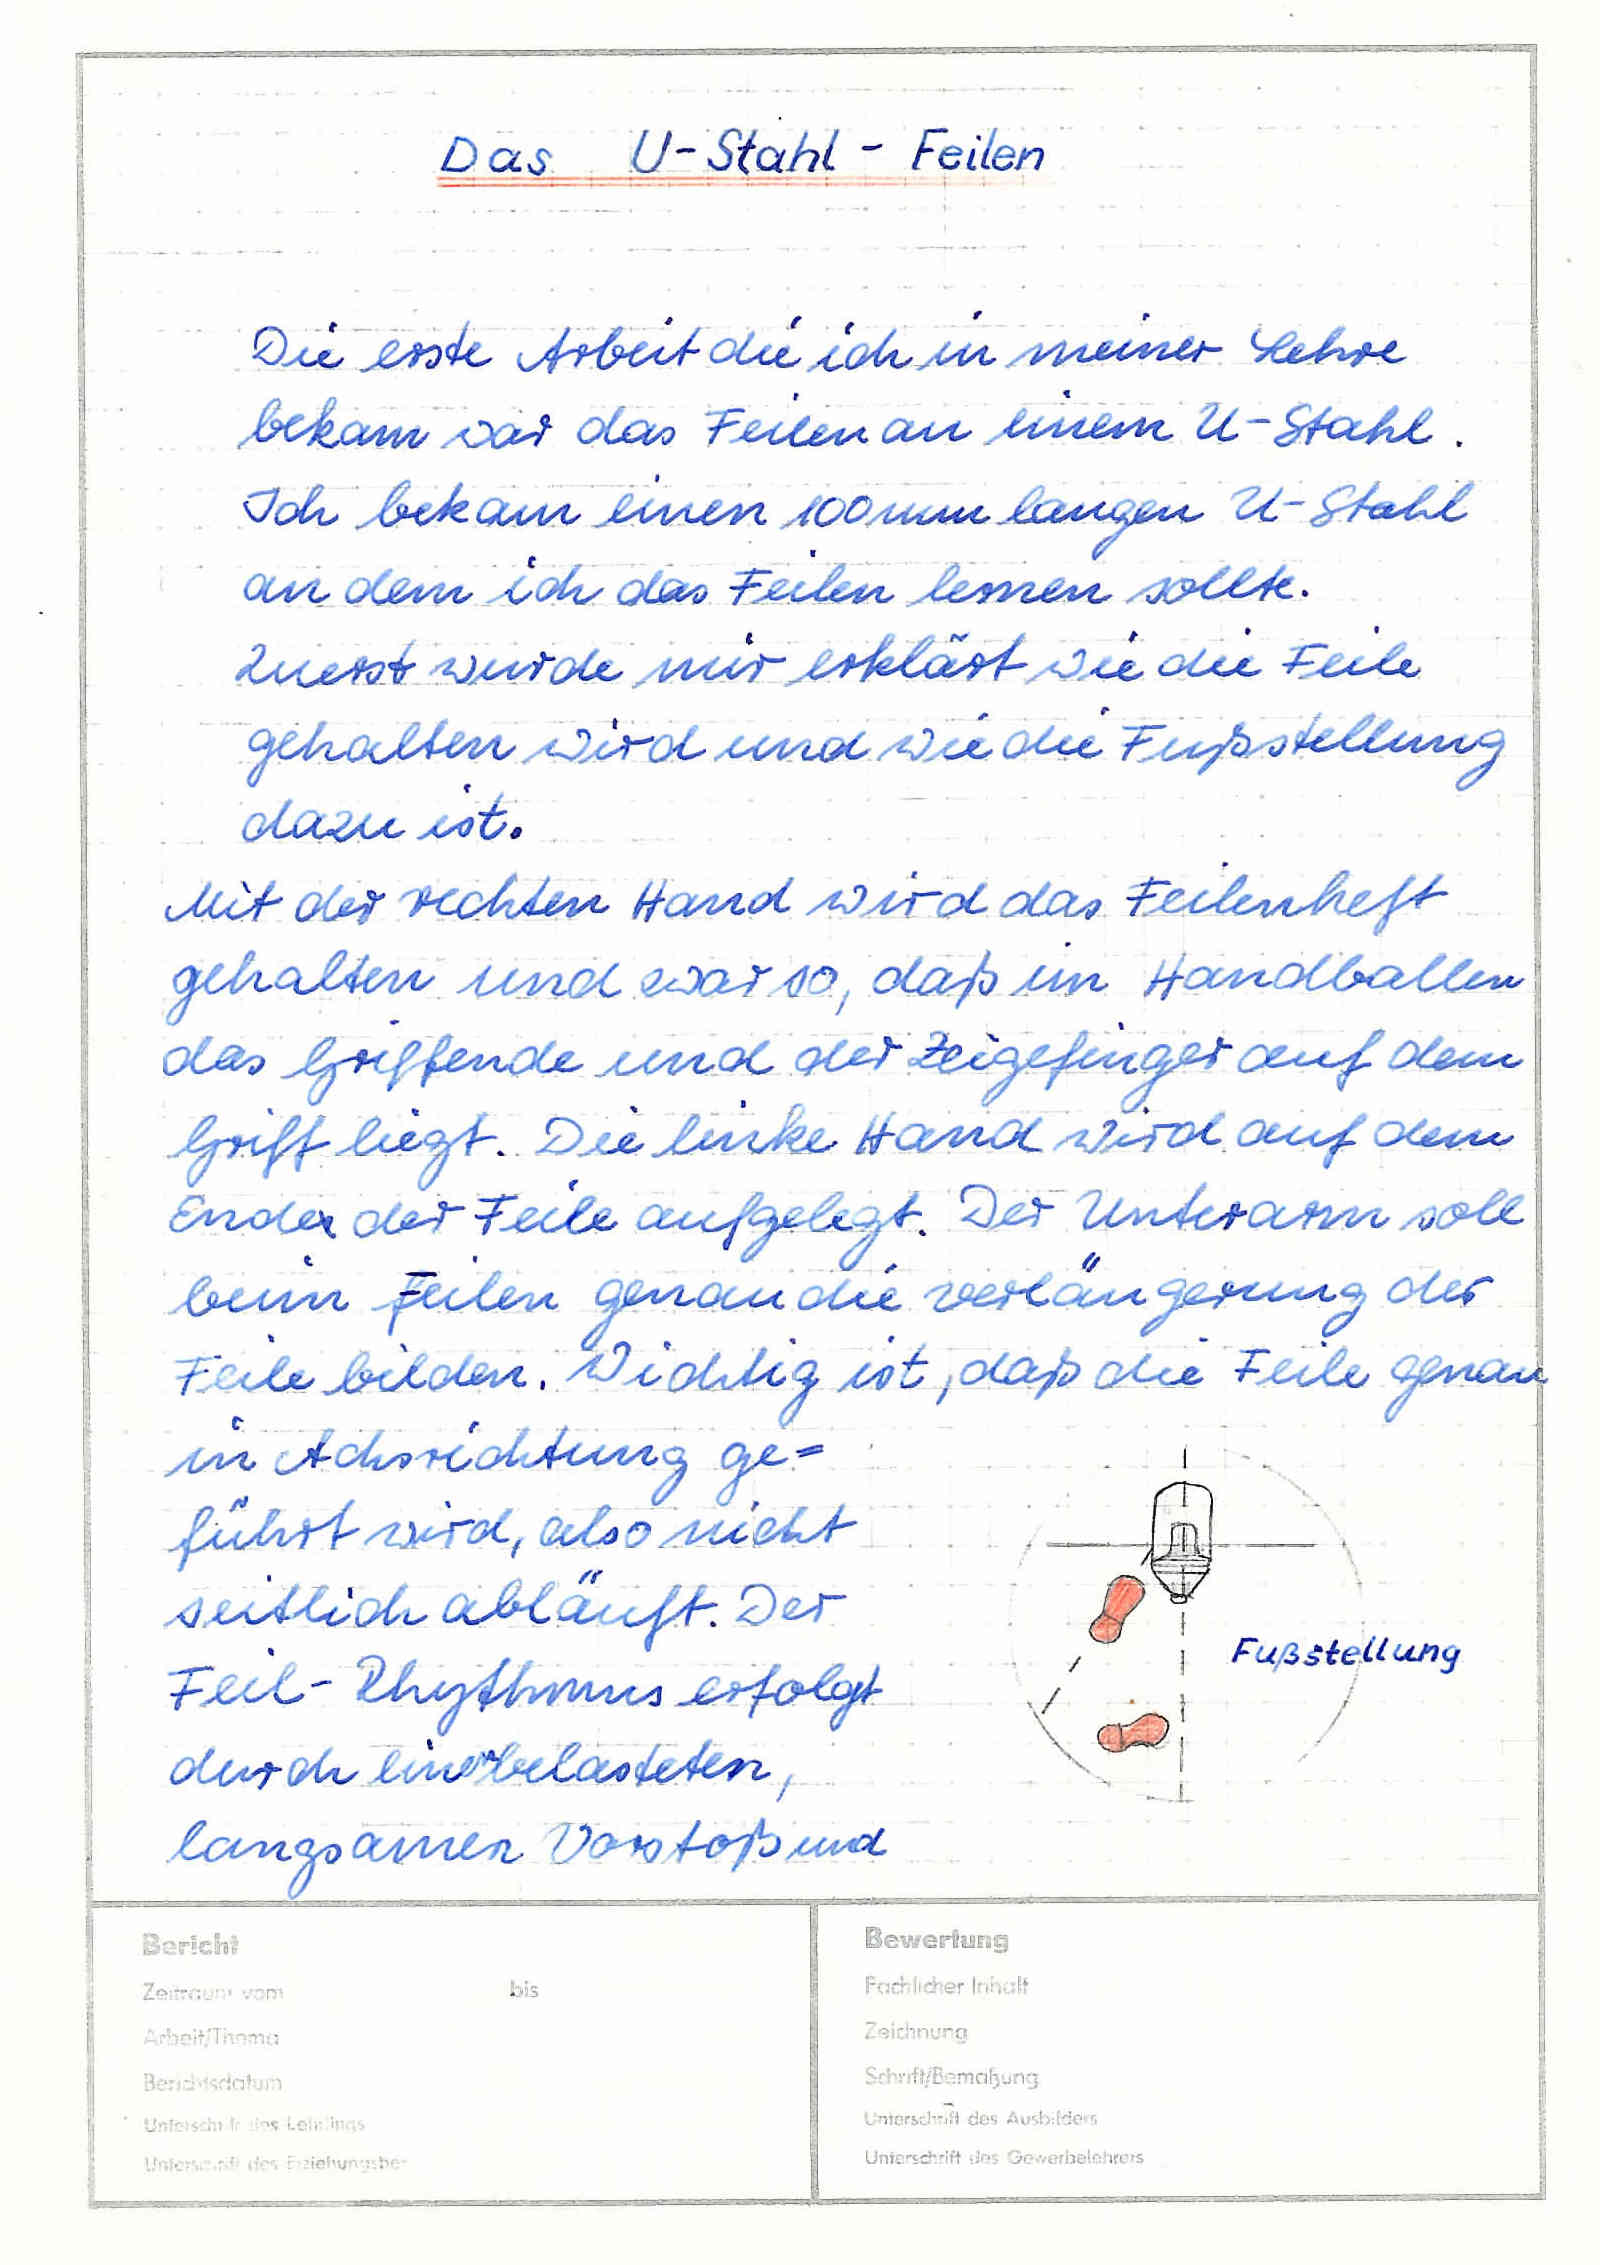 Das U-Stahl-Feilen
Die erste Arbeit die ich in meiner Lehre
bekam war das Feilen an einem U-Stahl.
Ich bekam einen 100mm langen U-Stahl
an dem ich das Feilen lernen sollte.
Zuerst wurde mir erklärt wie die Feile
gehalten wird und wie die Fußstellung
dazu ist.
Mit der rechten Hand wird das Feilenheft
gehalten und zwar so, daß im Handballen
das Griffende und der Zeigefinger auf dem
Griff liegt. Die linke Hand wird auf dem
Ende der Feile aufgelegt. Der Unterarm soll
beim Feilen genau die verlängerung der
Feile bilden. Wichtig ist, daß die Feile genau
in Achsrichtung ge=
führt wird, also nicht
seitlich abläuft. Der
Feil-Rhythmus erfolgt
durch einen belasteten,
langsamen Vorstoß und
Fußstellung
Bericht
Zeitraum vom bis
Arbeit/Thema
Berichtsdatum
Unterschrift des Lehrlings
Unterschrift des Erziehungsber
Bewertung
Fachlicher Inhalt
Zeichnung
Schrift/Bemaßung
Unterschrift des Ausbilders
Unterschrift des Gewerbelehrers